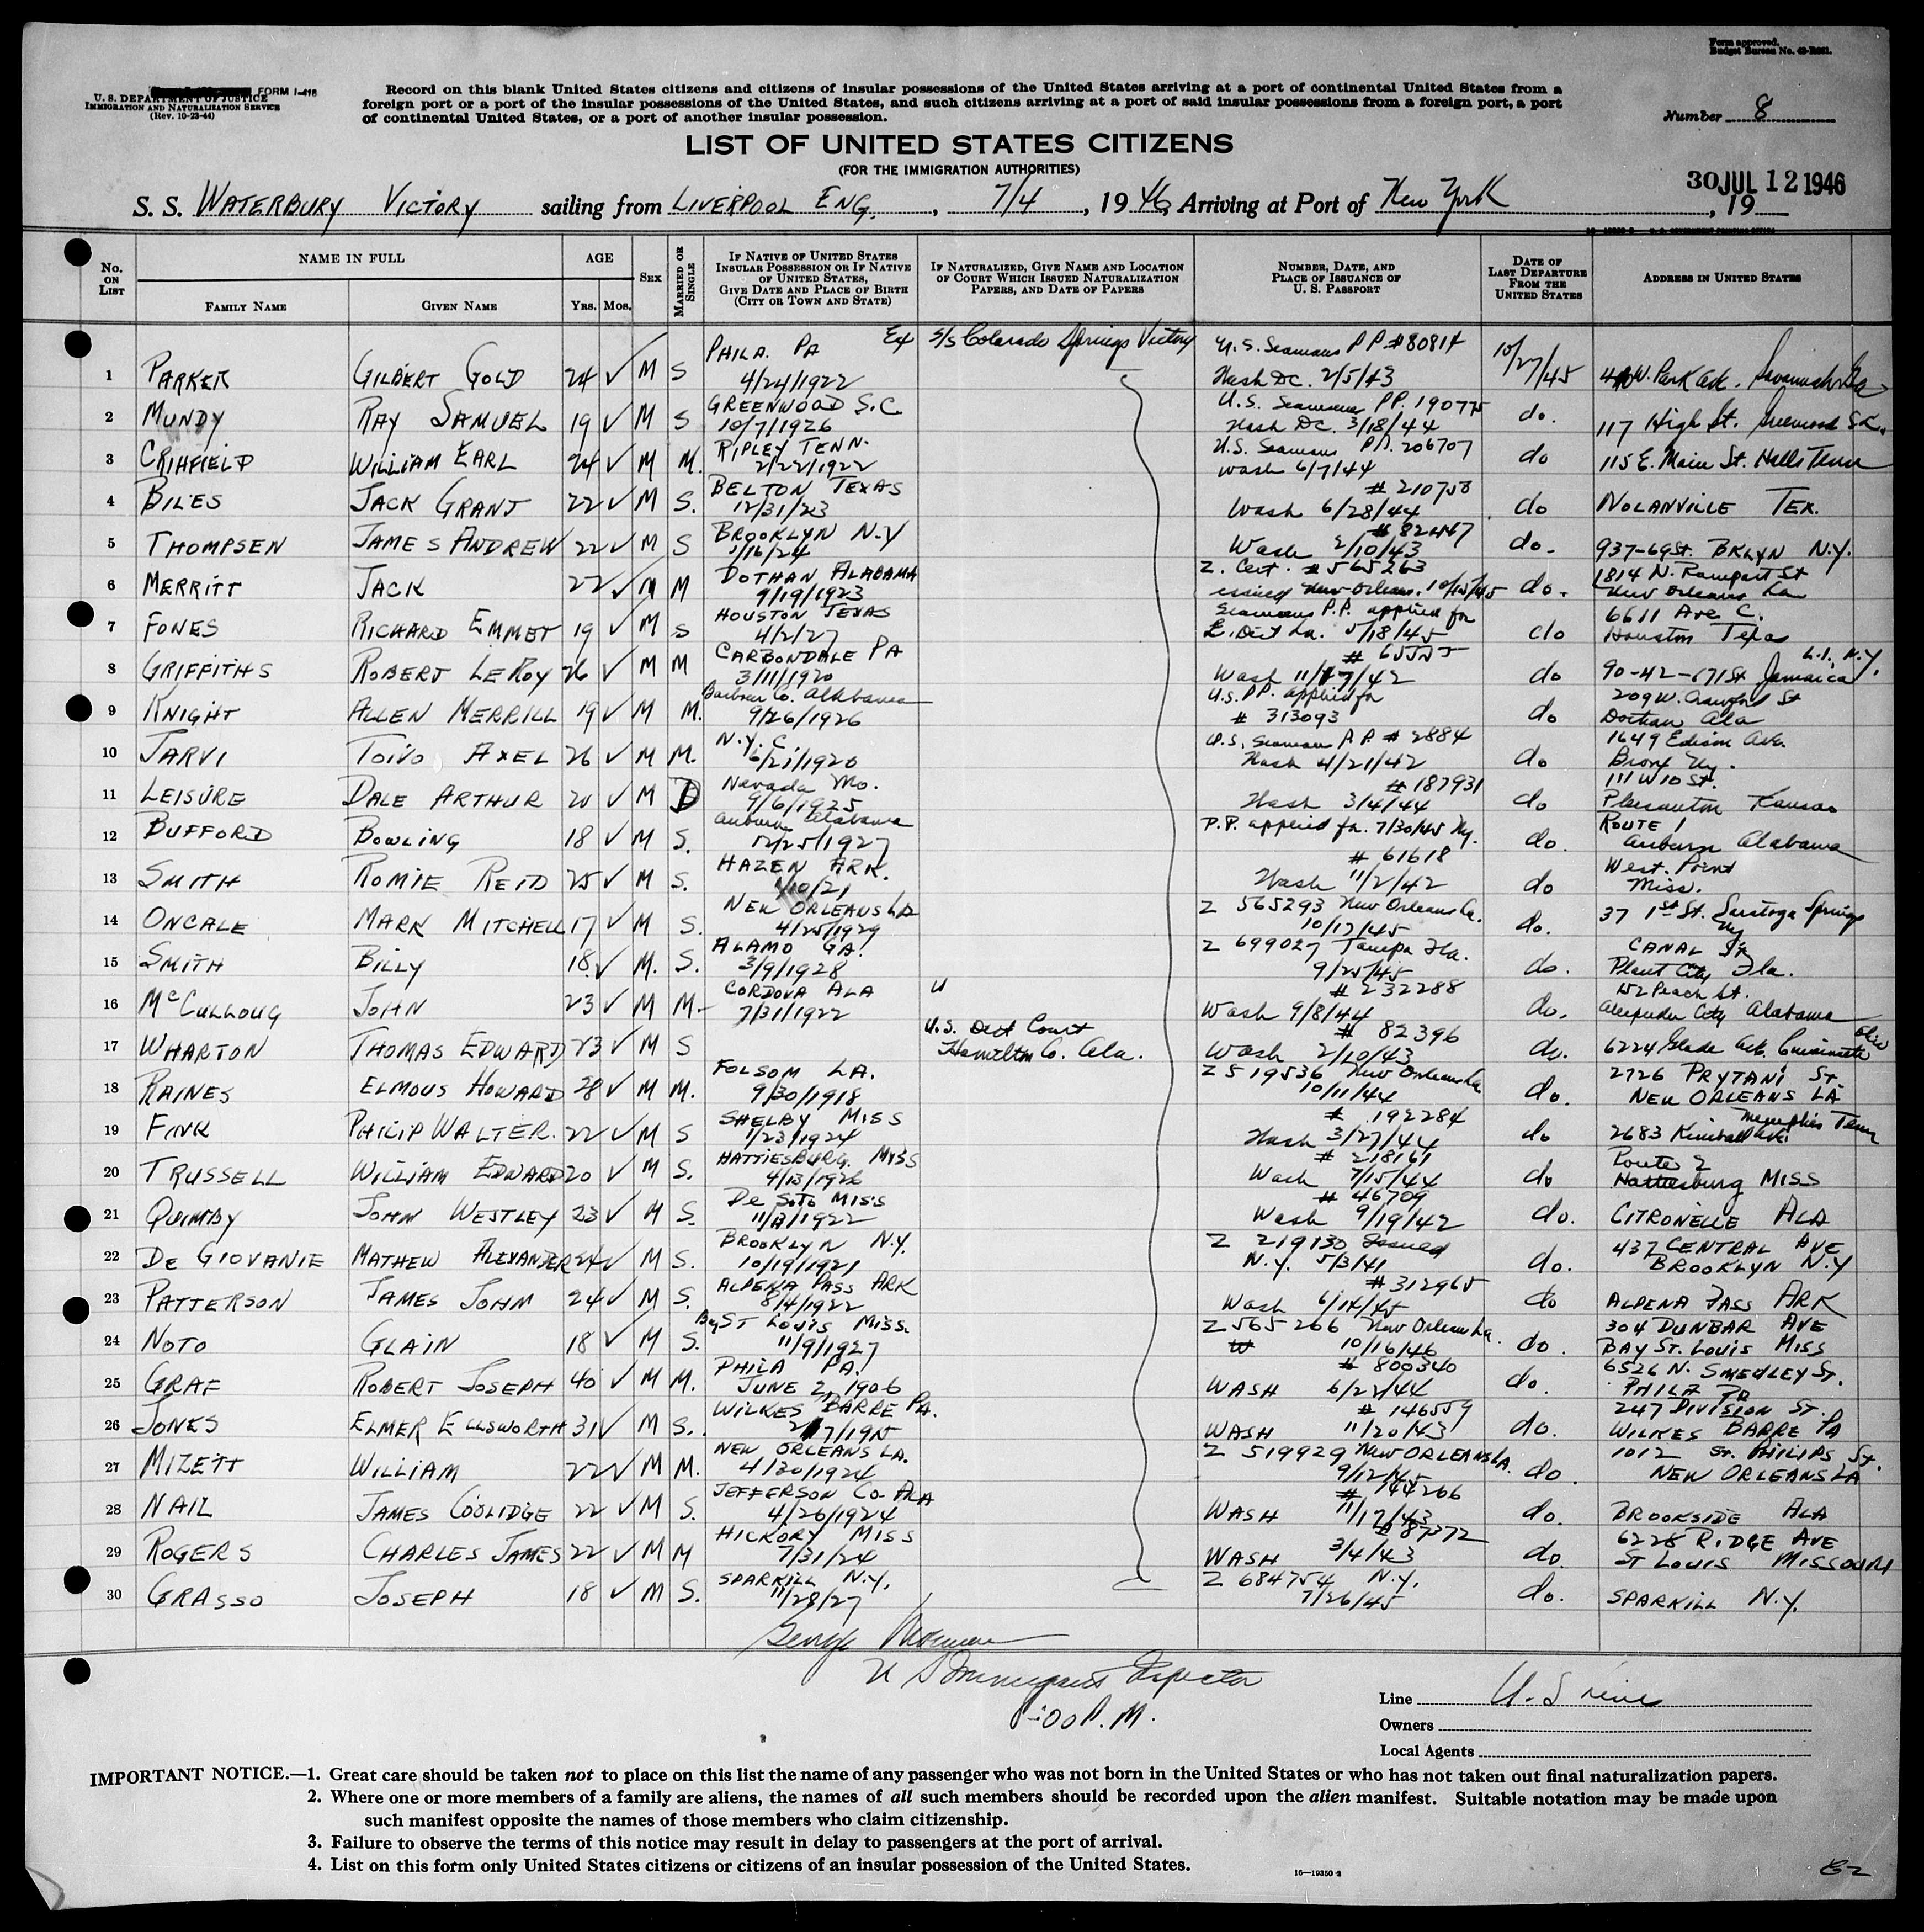 Form approved.
Budget Bureau No. 43-R031.
FORM I-416
U. S. DEPARTMENT OF JUSTICE
IMMIGRATION AND NATURALIZATION SERVICE
(Rev. 10-23-44)
Record on this blank United States citizens and citizens of insular possessions of the United States arriving at a port of continental United States from a
foreign port or a port of the insular possessions of the United States, and such citizens arriving at a port of said insular possessions from a foreign port, a port
of continental United States, or a port of another insular possession.
Number 8
LIST OF UNITED STATES CITIZENS
(FOR THE IMMIGRATION AUTHORITIES)
S. S. WATERBURY VICTORY sailing from LIVERPOOL ENG, 7/4, 1946, Arriving at Port of New York, 19
30 JUL 12 1946
No. ON LIST
NAME IN FULL
FAMILY NAME
GIVEN NAME
AGE
Yrs. Mos.
SEX
MARRIED OR SINGLE
IF NATIVE OF UNITED STATES INSULAR POSSESSION OR IF NATIVE OF UNITED STATES, GIVE DATE AND PLACE OF BIRTH (CITY OR TOWN AND STATE)
IF NATURALIZED, GIVE NAME AND LOCATION OF COURT WHICH ISSUED NATURALIZATION PAPERS, AND DATE OF PAPERS
NUMBER, DATE, AND PLACE OF ISSUANCE OF U. S. PASSPORT
DATE OF LAST DEPARTURE FROM THE UNITED STATES
ADDRESS IN UNITED STATES
Ex S/S Colorado Springs Victory
1 PARKER GILBERT GOLD 24 ✓ M S PHILA. PA 4/24/1922 U.S. Seamans PP #80814 Wash DC. 2/5/43 10/27/45 W. Park Ave. Savannah Ga
2 MUNDY RAY SAMUEL 19 ✓ M S GREENWOOD S.C. 10/7/1926 U.S. Seamans PP. 190775 Wash DC. 3/18/44 do. 117 High St. Greenwood S.C.
3 CRIHFIELD WILLIAM EARL 24 ✓ M M. RIPLEY TENN. 2/22/1922 U.S. Seamans PP. 206707 Wash 6/7/44 do 115 E. Main St. Halls Tenn
4 BILES JACK GRANT 22 ✓ M S. BELTON TEXAS 12/31/23 # 210758 Wash 6/28/44 do NOLANVILLE TEX.
5 THOMPSEN JAMES ANDREW 22 ✓ M S BROOKLYN N.Y 1/16/24 # 82447 Wash 2/10/43 do. 937-69 St. BKLYN N.Y.
6 MERRITT JACK 22 ✓ M M DOTHAN ALABAMA 9/19/1923 Z. Cert. #565263 issued New Orleans. 10/15/45 do. 1814 N. Rampart St New Orleans La
7 FONES RICHARD EMMET 19 ✓ M S HOUSTON TEXAS 4/2/27 Seamans P.P. applied for E. Dist La. 5/18/45 do 6611 Ave C. Houston Texas
8 GRIFFITHS ROBERT LEROY 26 ✓ M M CARBONDALE PA 3/11/1920 # 65555 Wash 11/17/42 do 90-42-171 St Jamaica L.I. N.Y.
9 KNIGHT ALLEN MERRILL 19 ✓ M M. Barbour Co. Alabama 9/26/1926 U.S. PP. applied for # 313093 do 209 W. Crawford St Dothan Ala
10 JARVI TOIVO AXEL 26 ✓ M M. N.Y. C. 6/21/1920 U.S. Seamans P.P. # 2884 Wash 4/21/42 do 1649 Edison Ave. Bronx Ny.
11 LEISURE DALE ARTHUR 20 ✓ M D Nevada Mo. 9/6/1925 # 187931 Wash 3/4/44 do 111 W 10 St. Pleasanton Kansas
12 BUFFORD BOWLING 18 ✓ M S. Auburn Alabama 12/25/1927 P.P. applied for. 7/30/45 Ny. do. ROUTE 1 Auburn Alabama
13 SMITH ROMIE REID 25 ✓ M S. HAZEN ARK. 1/10/21 # 61618 Wash 11/2/42 do West. Point Miss.
14 ONCALE MARK MITCHELL 17 ✓ M S. NEW ORLEANS LA 4/25/1929 Z 565293 New Orleans La. 10/17/45 do. 37 1st St. Saratoga Springs Ny
15 SMITH BILLY 18 ✓ M. S. ALAMO GA. 3/9/1928 Z 699027 Tampa Fla. 9/25/45 do. CANAL St Plant City Fla.
16 McCULLOUG JOHN 23 ✓ M M- CORDOVA ALA 7/31/1922 # 232288 Wash 9/8/44 do. 152 Peach St. Alexander City Alabama
17 WHARTON THOMAS EDWARD 23 ✓ M S U.S. Dist Court Hamilton Co. Ala. # 82396 Wash 2/10/43 do. 6224 Glade Ave. Cincinnati Ohio
18 RAINES ELMOUS HOWARD 28 ✓ M M. FOLSOM LA. 9/30/1918 Z 519536 New Orleans La 10/11/44 do. 2726 PRYTANI ST. NEW ORLEANS LA
19 FINK PHILIP WALTER. 22 ✓ M S SHELBY MISS 1/23/1924 # 192284 Wash 3/27/44 do 2683 Kimball Ave. Memphis Tenn
20 TRUSSELL WILLIAM EDWARD 20 ✓ M S. HATTIESBURG. MISS 4/13/1926 # 218161 Wash 7/15/44 do Route 2 Hattiesburg MISS
21 QUIMBY JOHN WESTLEY 23 ✓ M S. DE SOTO MISS 11/8/1922 # 46709 Wash 9/19/42 do. CITRONELLE ALA
22 DE GIOVANIE MATHEW ALEXANDER 24 ✓ M S. BROOKLYN N.Y. 10/19/1921 Z 219130 Issued N.Y. 5/3/41 do. 437 CENTRAL AVE BROOKLYN N.Y
23 PATTERSON JAMES JOHM 24 ✓ M S. ALPENA PASS ARK 8/4/1922 # 312965 Wash 6/14/45 do ALPENA PASS ARK
24 NOTO GLAIN 18 ✓ M S. Bay ST LOUIS MISS. 11/9/1927 Z 565 266 New Orleans La. 10/16/46 do. 304 DUNBAR AVE BAY ST. LOUIS MISS
25 GRAF ROBERT JOSEPH 40 ✓ M M. PHILA PA. JUNE 2, 1906 # 800340 WASH 6/22/44 do. 6526 N. SMEDLEY ST. PHILA PA
26 JONES ELMER ELLSWORTH 31 ✓ M S. WILKES BARRE PA. 2/7/1915 # 146559 WASH 11/20/43 do. 247 DIVISION ST. WILKES BARRE PA
27 MIZETT WILLIAM 22 ✓ M M. NEW ORLEANS LA. 4/30/1924 Z 519929 NEW ORLEANS LA. 9/12/45 do. 1012 ST. PHILIPS ST. NEW ORLEANS LA
28 NAIL JAMES COOLIDGE 22 ✓ M S. JEFFERSON CO ALA 4/26/1924 # 144266 WASH 11/17/43 do. BROOKSIDE ALA
29 ROGERS CHARLES JAMES 22 ✓ M M HICKORY MISS 7/31/24 # 87372 WASH 3/4/43 do. 6228 RIDGE AVE ST LOUIS MISSOURI
30 GRASSO JOSEPH 18 ✓ M S. SPARKILL N.Y. 11/28/27 Z 684754 N.Y. 7/26/45 do. SPARKILL N.Y.
George
U S Immigrant Inspector
:00 P.M.
Line U.S
Owners
Local Agents
IMPORTANT NOTICE.—1. Great care should be taken not to place on this list the name of any passenger who was not born in the United States or who has not taken out final naturalization papers.
2. Where one or more members of a family are aliens, the names of all such members should be recorded upon the alien manifest. Suitable notation may be made upon
such manifest opposite the names of those members who claim citizenship.
3. Failure to observe the terms of this notice may result in delay to passengers at the port of arrival.
4. List on this form only United States citizens or citizens of an insular possession of the United States.
16—19350-2